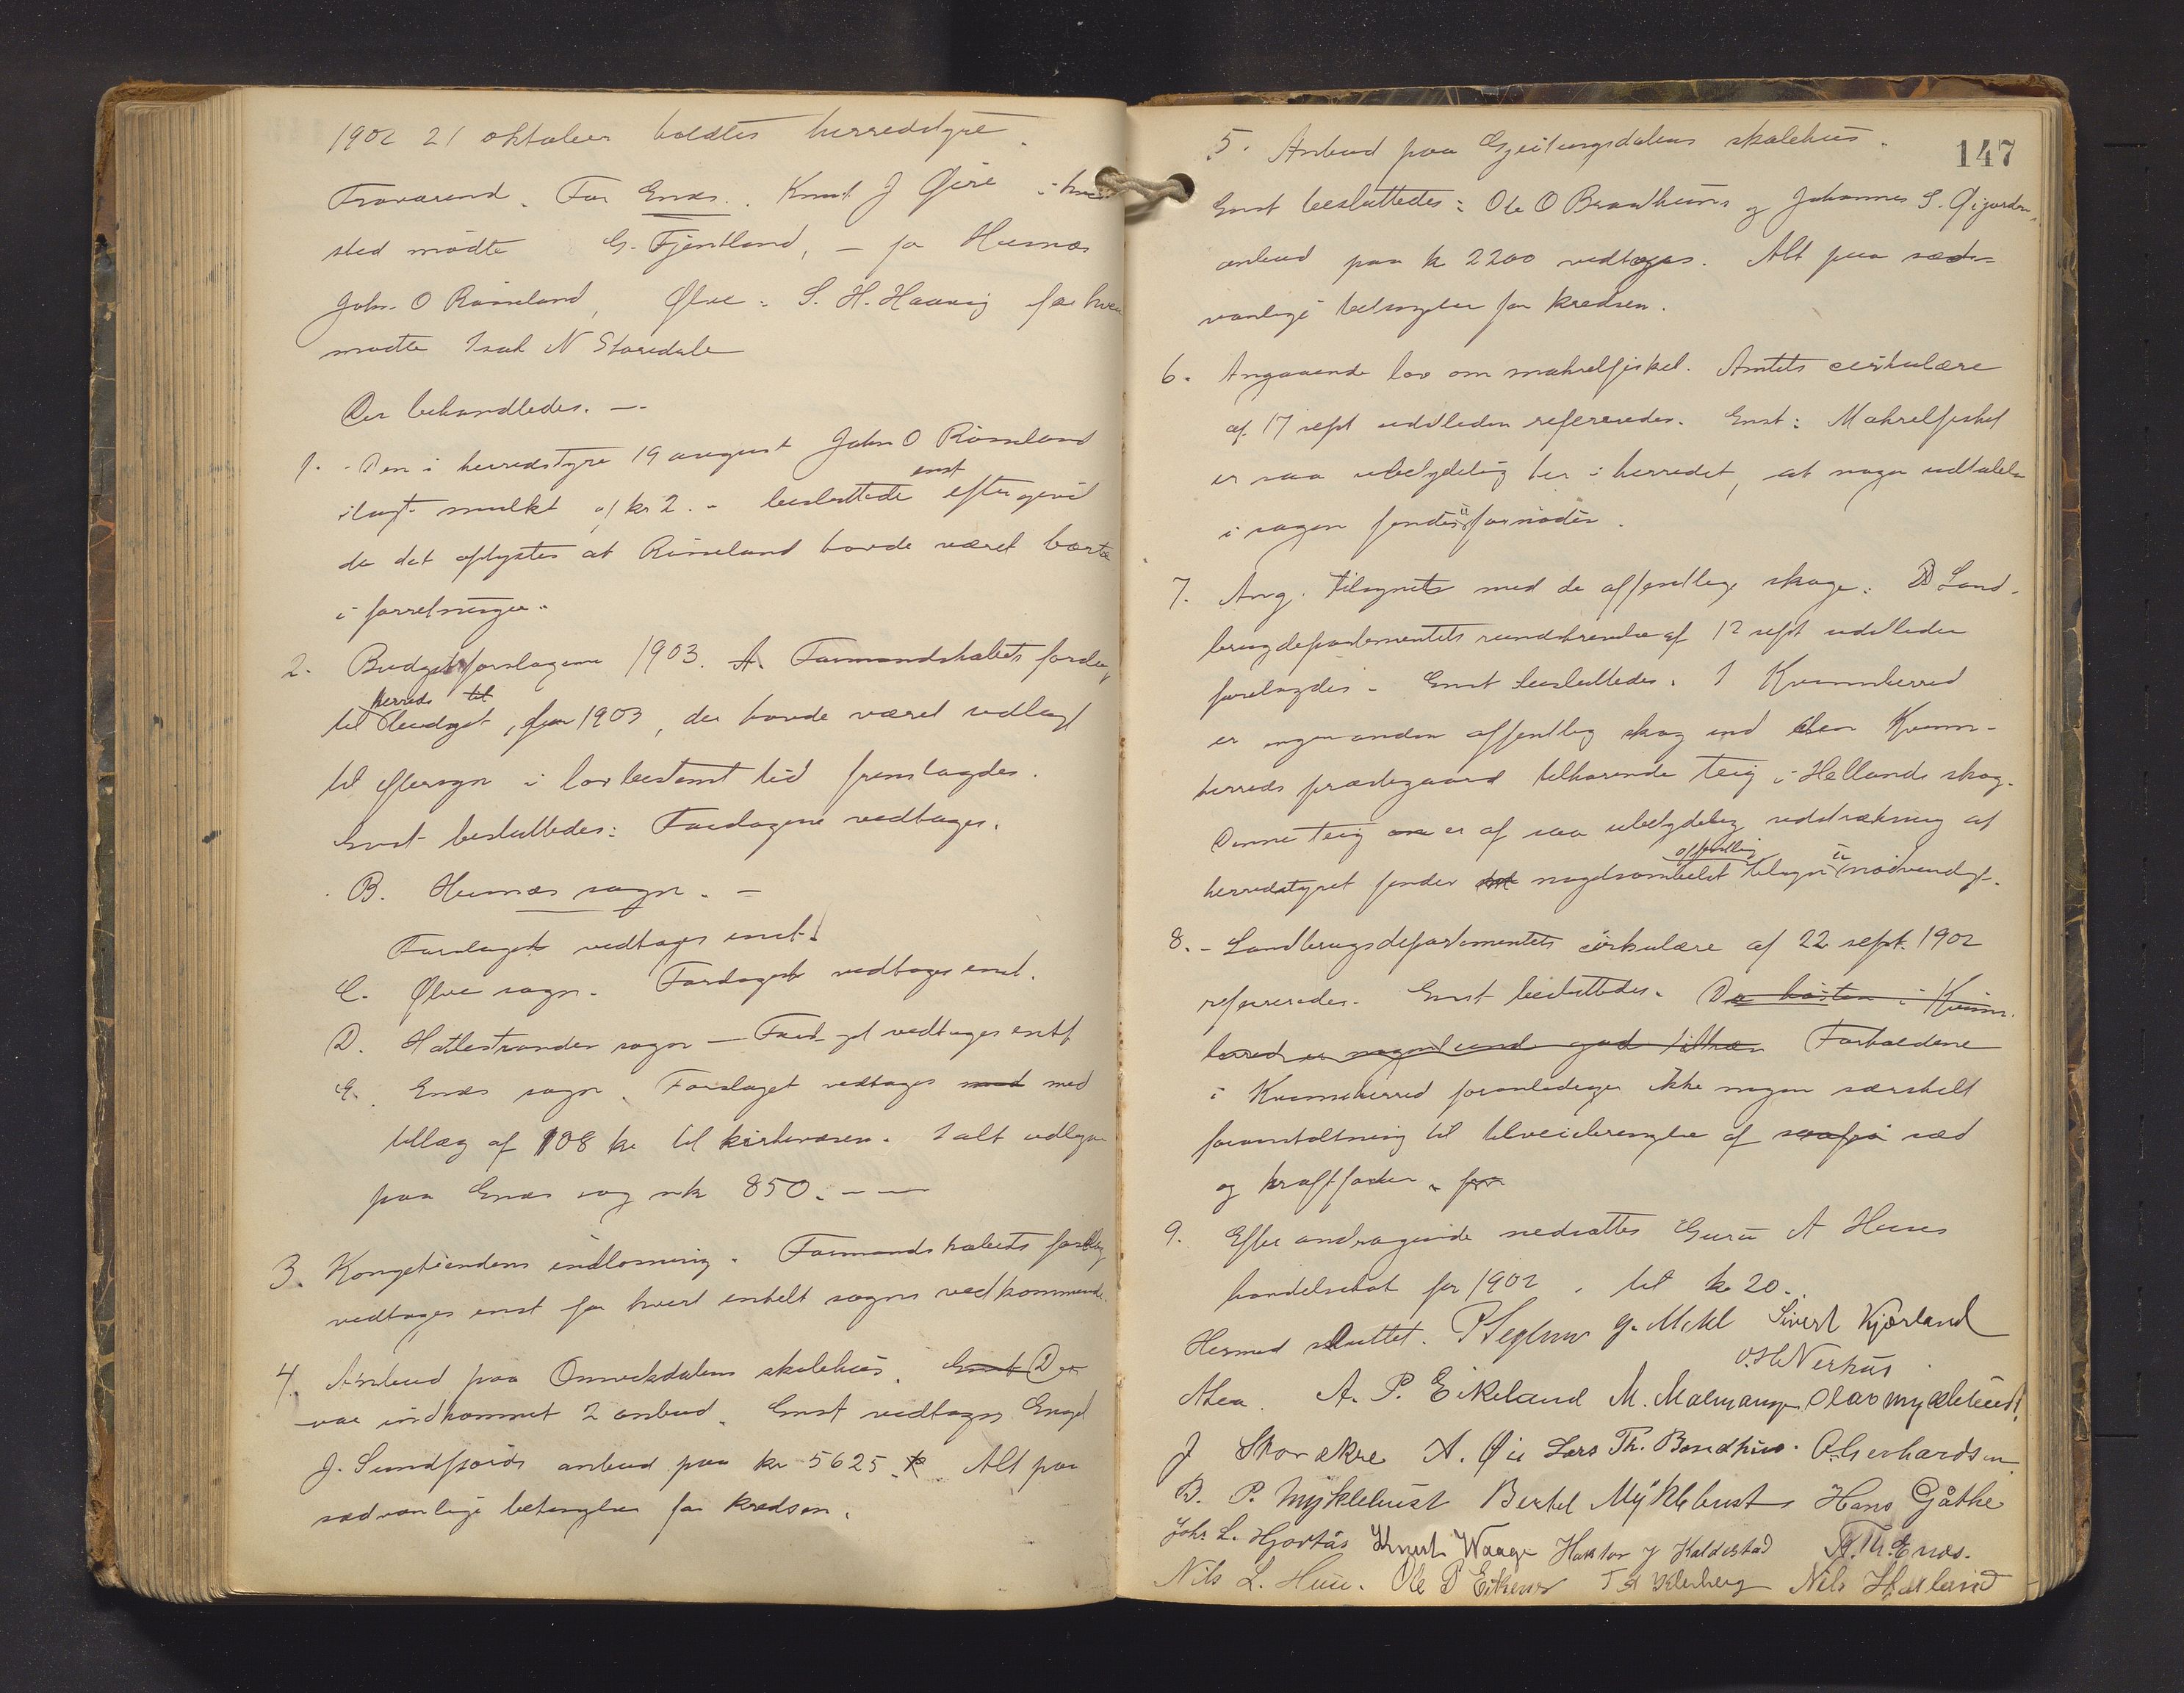 1902 21 oktober holdtes herredstyre.
Fraværend. For Enes. Knut J Øire i hvis
sted mødte G. Fjentland, – fra Husnæs
John. O Røiseland, Ølve: S. H. Haavig for hvem
mødte Isak N Storedale
Der behandledes. —.
1. - Den i herredstyre 19 august John O Røiseland
enst
ilagt mulkt af kr 2. - besluttede eftergivet
da det oplystes at Røiseland havde været borte
i forretninger.
2. Budgetforslagene 1903. A. Formandskabets forslag
herreds til
til budget, for 1903, der havde været udlagt
til eftersyn i lovbestemt tid fremlagdes.
Enst besluttedes: Forslagene vedtages.
B. Husnæs sogn. –
Forslaget vedtages enst.
C. Ølve sogn. Forslaget vedtages enst.
D. Hatlestrandens sogn — Forslaget vedtages enst
E. Enes sogn. Forslaget vedtages med med
tillæg af 108 kr til kirkevæsen. I alt udlignes
paa Enes sogn kr 850. — —
3. Kongetiendens indløsning. Formandskabets forslag
vedtages enst for hvert enkelt sogns vedkommende.
4. Anbud paa Omvikdalens skolehus. Enst Der
var indkommet 2 anbud. Enst vedtages Engel
J. Sundfjords anbud paa kr 5625. Alt paa
sædvanlige betingelser for kredsen.
147
5. Anbud paa Gjeitungsdalens skolehus.
Enst besluttedes: Ole O Brandhuns og Johannes S. Øigarden,
anbud paa kr 2200 vedtages. Alt paa sæd-
vanlige betingelser for kredsen.
6. Angaaende lov om makrelfisket. Amtets cirkulære
af 17 sept udsleden refereredes. Enst: Makrelfisket
er saa ubetydelig her i herredet, at nogen udtalelse
i sagen findes u fornøden.
7. Ang. tilsynets med de offentlige skoge. Land-
brugdepartementets rundskrivelse af 12 sept udsleden
forelagdes. Enst besluttedes. I Kvinnherred
er ingen anden offentlig skog end den Kvinn-
herreds præstegaard tilhørende teig i Hellands skog.
Denne teig er af saa ubetydelig udstrækning at
offentlig
herredstyret finder nogetsomhelst tilsyn unødvendigt.
8. - Landbrugsdepartementets cirkulære af 22 sept. 1902
refereredes. Enst besluttedes. Da høsten i Kvinn-
herred er nogenlunde god Forholdene
i Kvinnherred foranlediger ikke nogen særskilt
foranstaltning til tilveiebringelse af saafrø sæd
og kraftfoder. for
9. Efter andragende nedsattes Guru A Huses
handelsskat for 1902. til kr 20.
Hermed sluttet. G. Mehl Sivert Kjærland
O.H.Nerhus
A. P. Eikeland M. Malmanger Olav Myklebust
J Storækre A. Øie Lars Th. Bondhus. O. Gerhardsen
B. P. Myklebust Bertel Myklebust Hans Gåthe
Johs L. Hjortås Knut Waage Haktor J Kaldestad A. Th. Enæs.
Nils L. Huse. Ole P Eikenes Nils Hatland